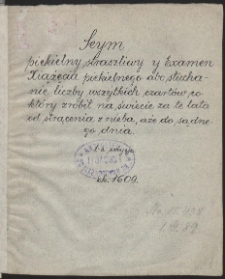 Seym
piekielny straszliwy y Examen
Xiążęcia piekielnego abo słucha-
nie liczby wszytkich czartów, co
który zrobił na świecie za te lata
od strącenia z nieba, aże do sądne-
go dnia.
rk. 1600.